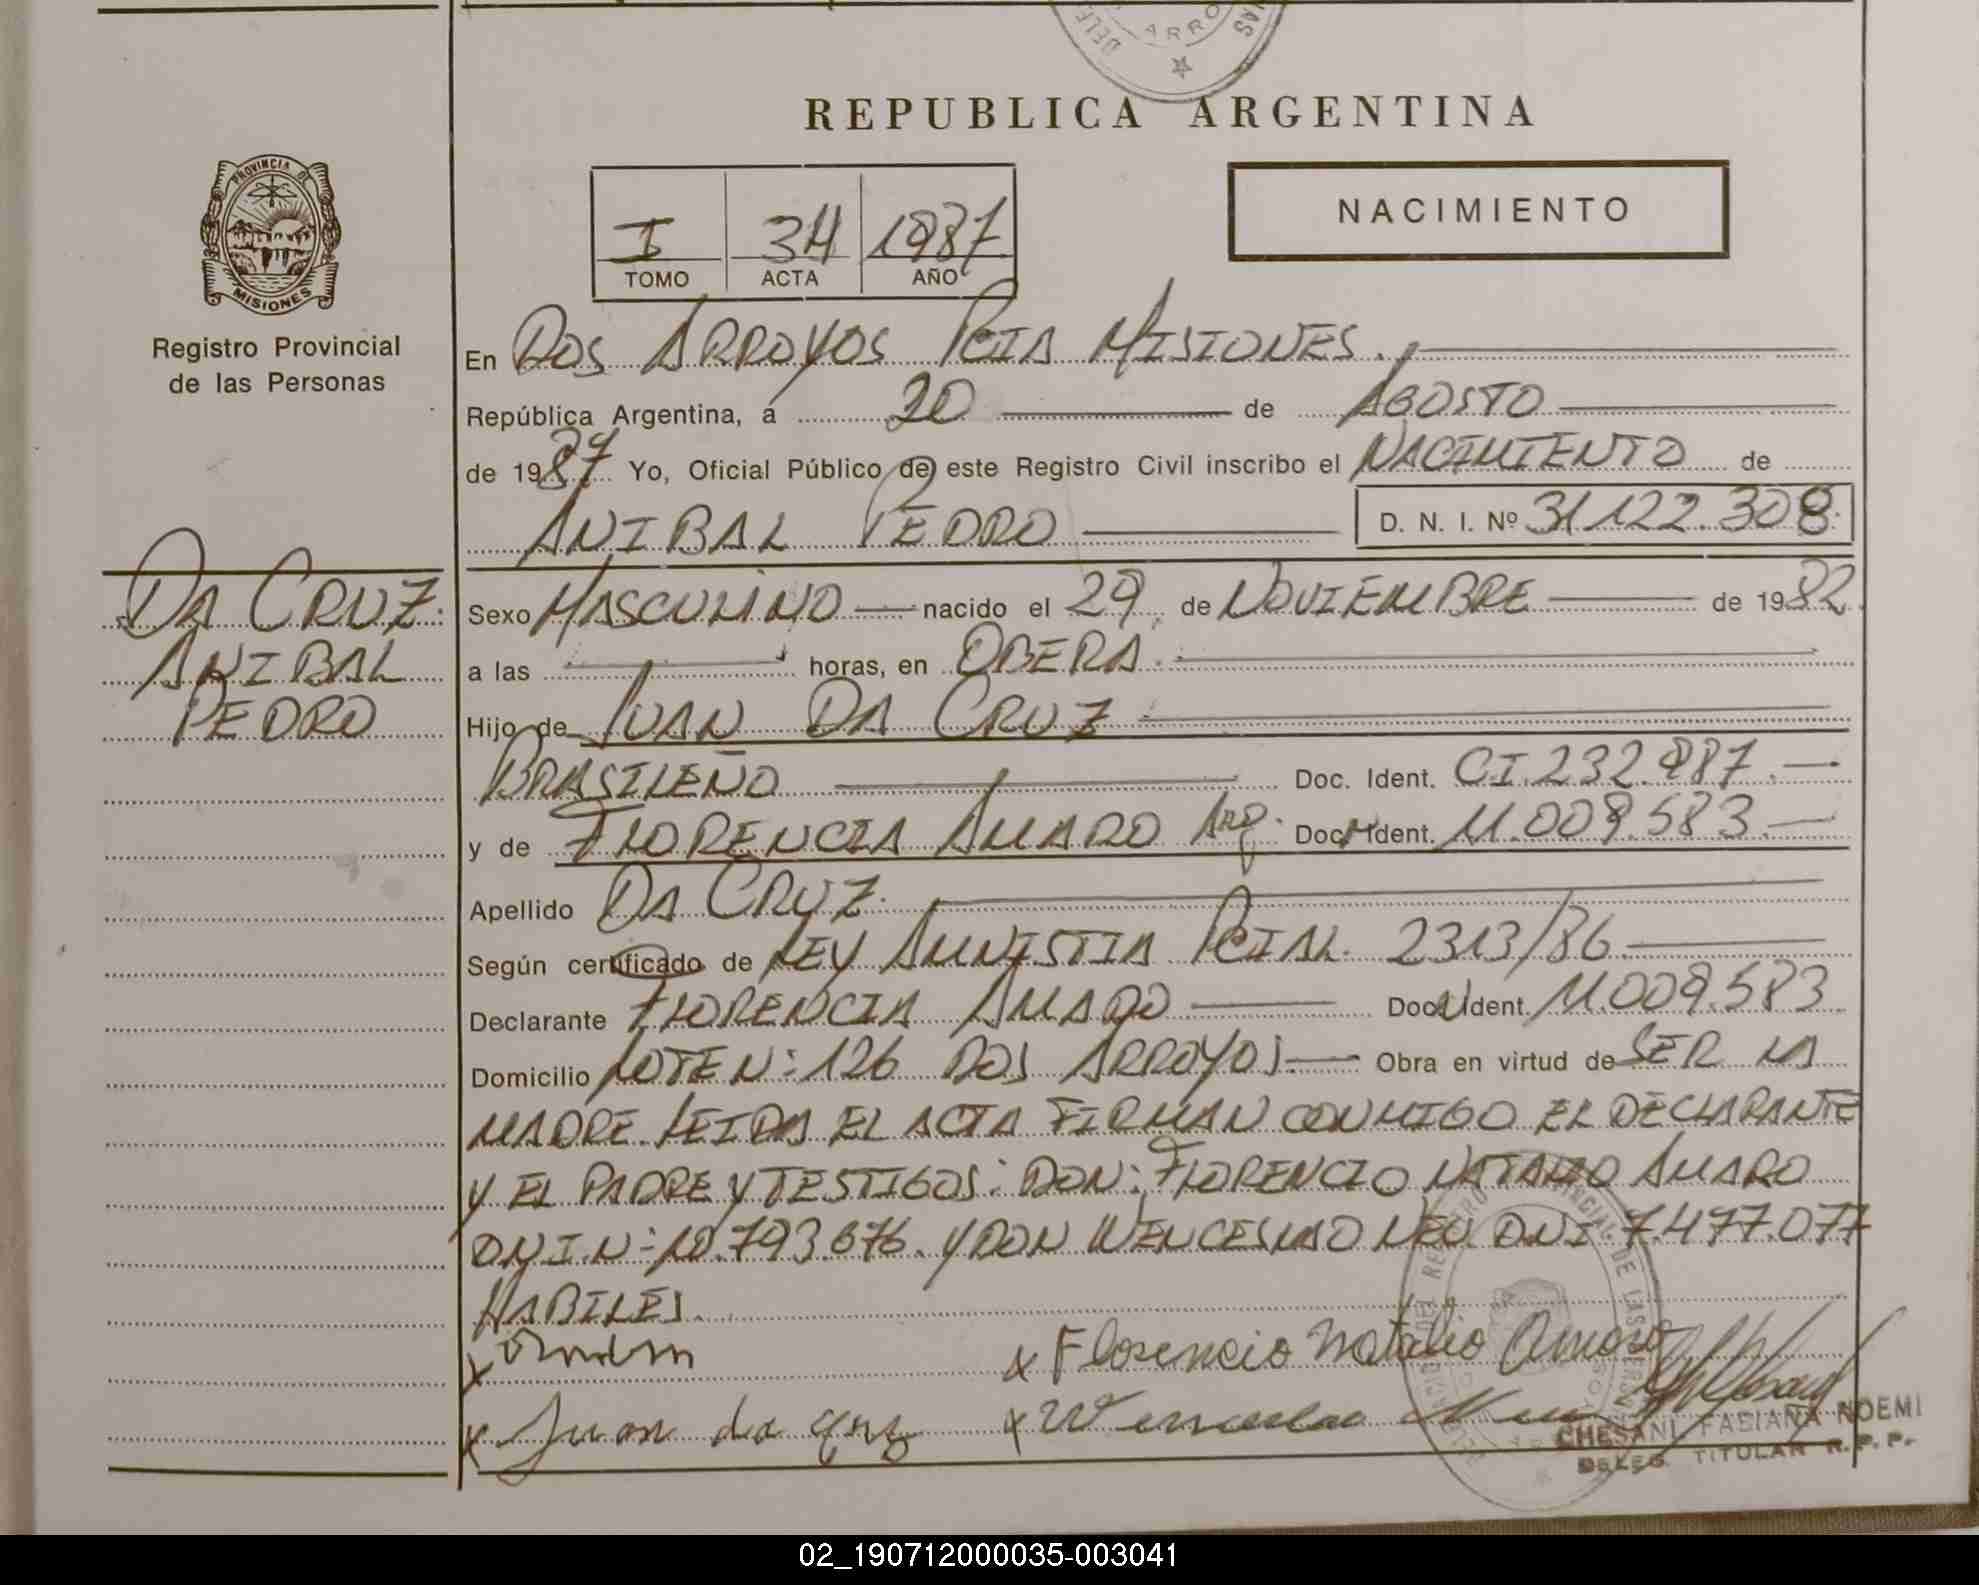 REPUBLICA ARGENTINA
PROVINCIA DE
MISIONES
Registro Provincial
de las Personas
NACIMIENTO
I 34 1987
TOMO ACTA AÑO
En DOS ARROYOS PCIA MISIONES.
República Argentina, a 20 de AGOSTO
de 1987 Yo, Oficial Público de este Registro Civil inscribo el NACIMIENTO de
ANIBAL PEDRO D. N. I. Nº 31.122.308
DA CRUZ
ANIBAL
PEDRO
Sexo MASCULINO nacido el 29 de NOVIEMBRE de 1982
a las horas, en OBERA.
Hijo de JUAN DA CRUZ
BRASILEÑO Doc. Ident. CI.232.987.
y de FLORENCIA AMARO Arg. Doc. Ident. 11.009.583.
Apellido DA CRUZ.
Según certificado de LEY AMNISTIA PCIAL. 2313/86
Declarante FLORENCIA AMARO Doc. Ident. 11.009.583
Domicilio LOTE N: 126 DOS ARROYOS. Obra en virtud de SER LA
MADRE. LEIDA EL ACTA FIRMAN CONMIGO EL DECLARANTE
Y EL PADRE Y TESTIGOS: DON: FLORENCIO NATALIO AMARO
DNI.N: 10.793.676. Y DON WENCESLAO NEU DNI 7.477.077
HABILES.
x Florencio Natalio Amaro
x Juan da Cruz x Wenceslao Neu
CHESANI FABIANA NOEMI
DELEG. TITULAR R.P.P.
02_190712000035-003041